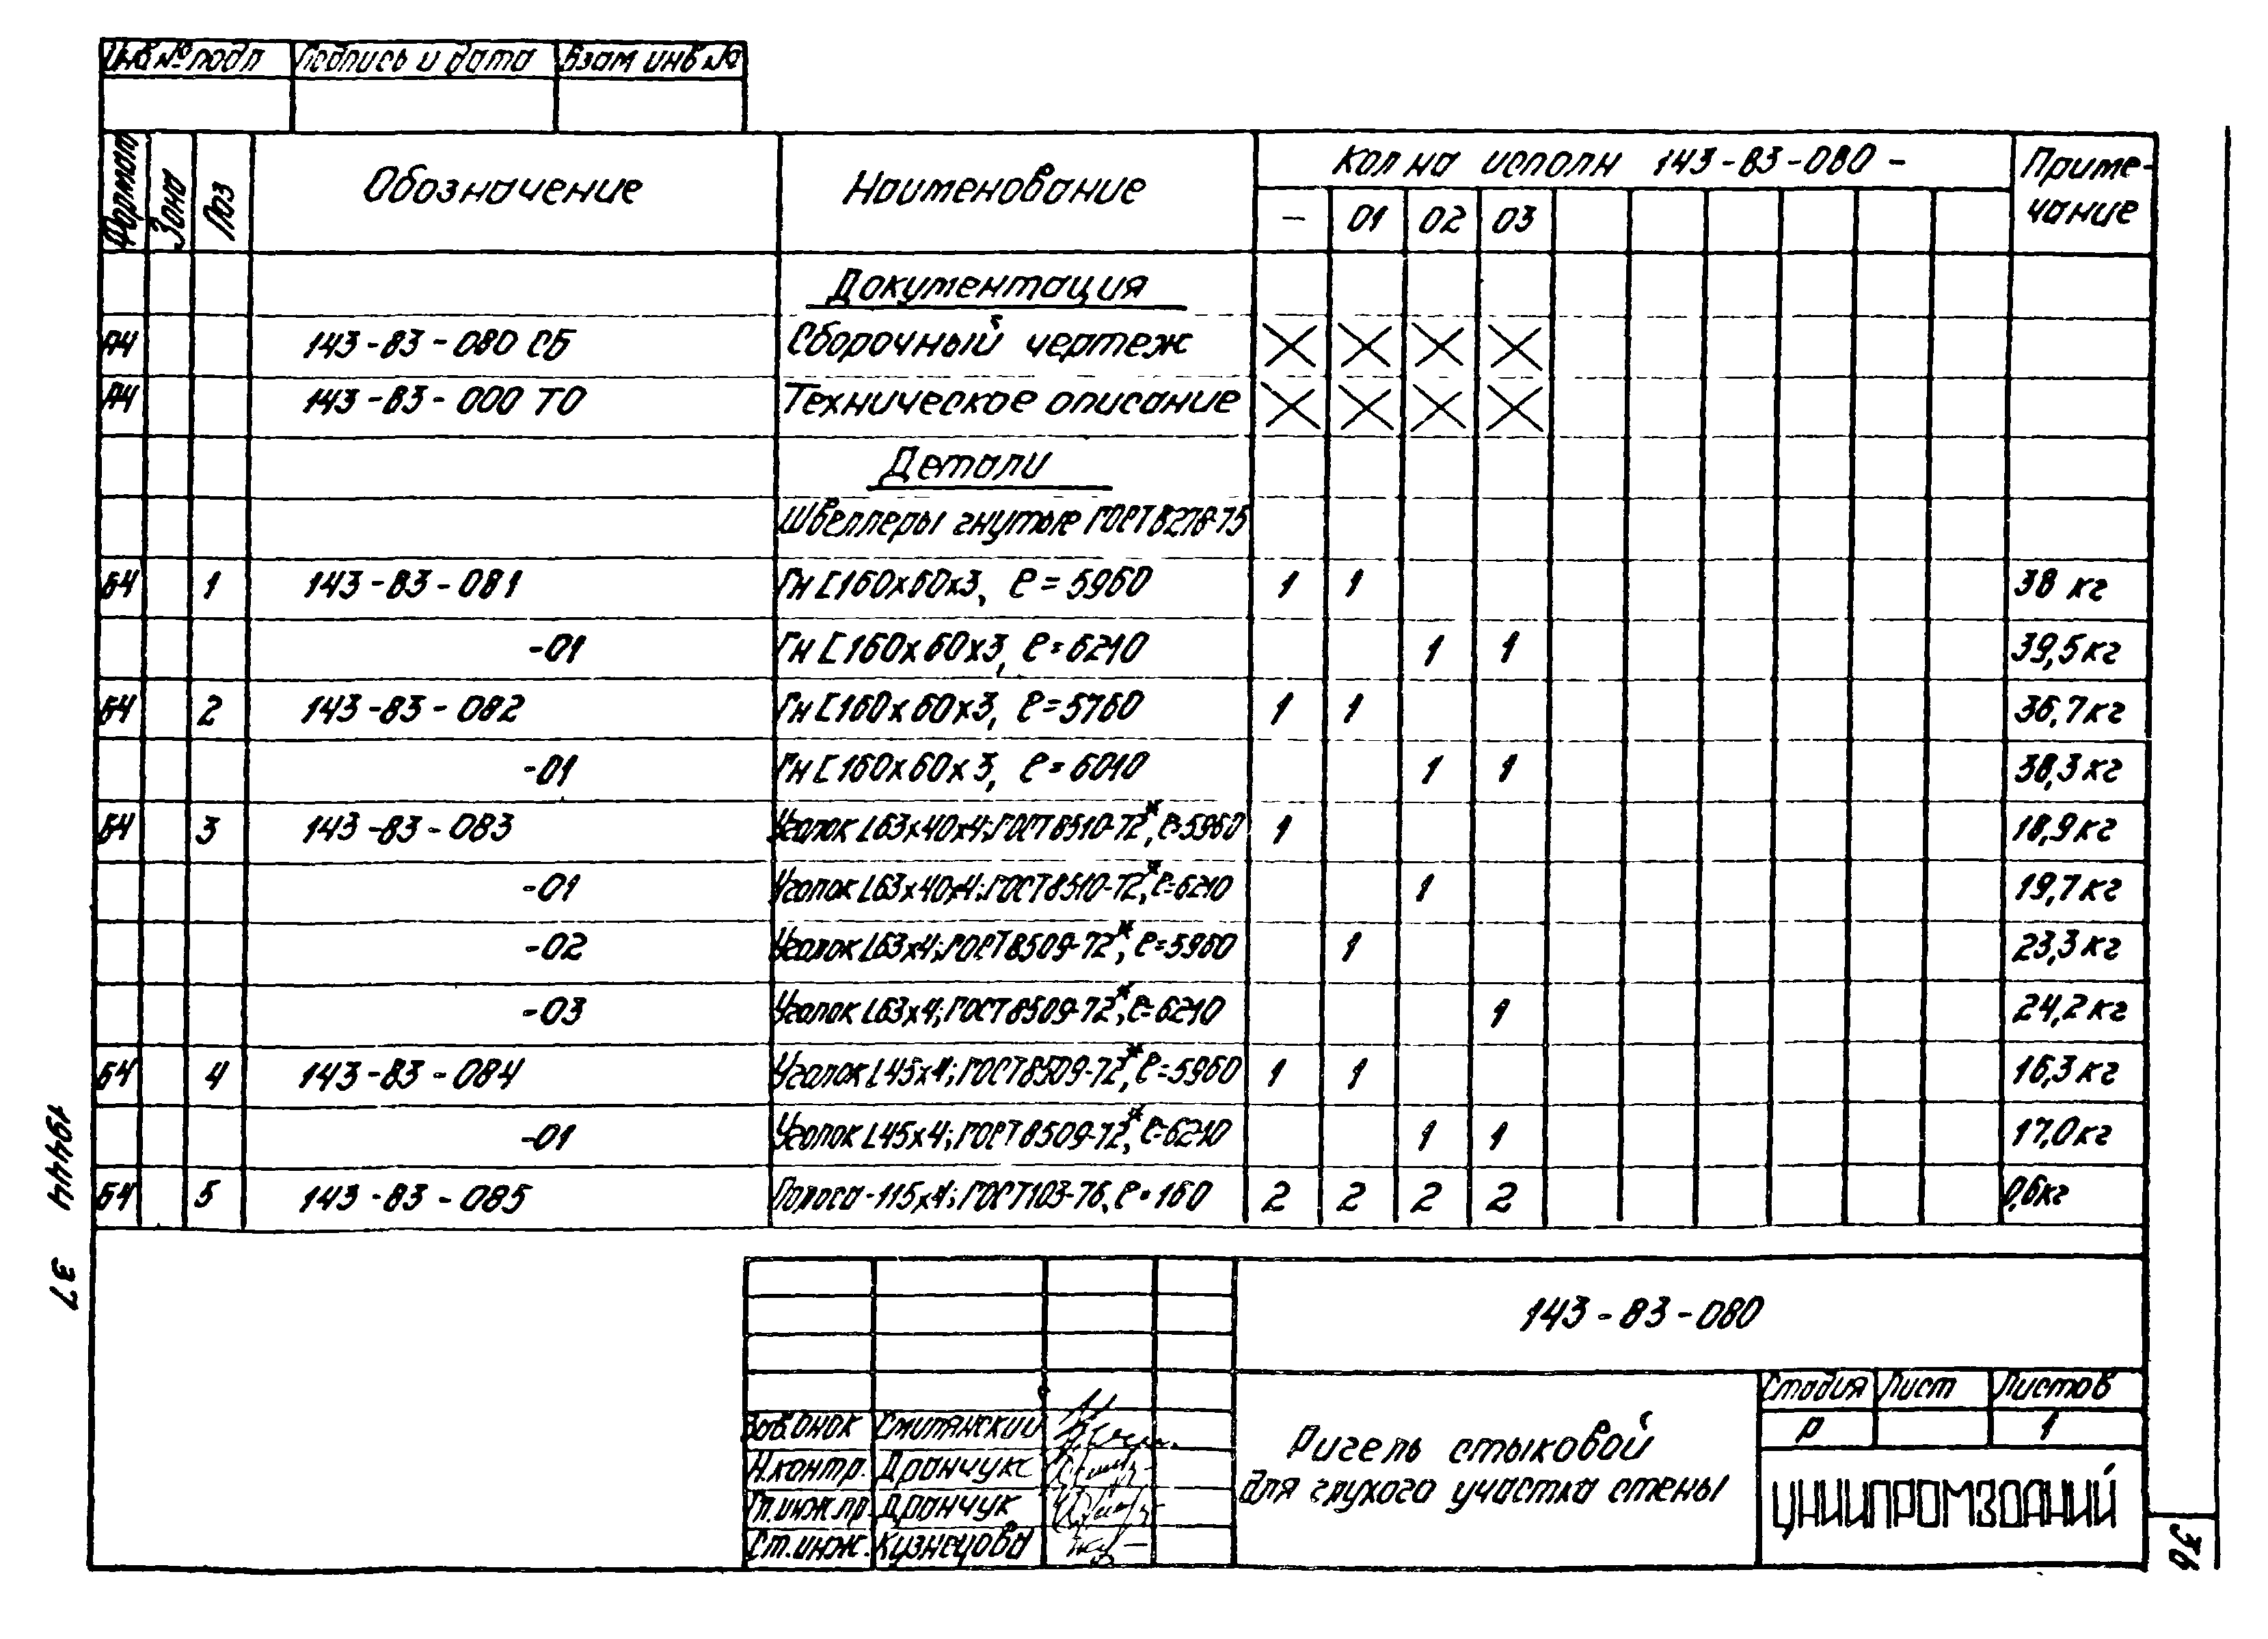 Инв № подл Подпись и дата Взам инв №
Формат Зона Поз Обозначение Наименование Кол на исполн 143-83-080- Приме-
чание
- 01 02 03
Документация
А4 143-83-080 СБ Сборочный чертеж
А4 143-83-000 ТО Техническое описание
Детали
Швеллеры гнутые ГОСТ 8278-75
Б4 1 143-83-081 Гн [160х60х3, ℓ=5960 1 1 38 кг
-01 Гн [160х60х3, ℓ=6210 1 1 39,5 кг
Б4 2 143-83-082 Гн [160х60х3, ℓ=5760 1 1 36,7 кг
-01 Гн [160х60х3, ℓ=6010 1 1 38,3 кг
Б4 3 143-83-083 Уголок L63х40х4; ГОСТ 8510-72*, ℓ=5960 1 18,9 кг
-01 Уголок L63х40х4; ГОСТ 8510-72*, ℓ=6210 1 19,7 кг
-02 Уголок L63х4; ГОСТ 8509-72*, ℓ=5960 1 23,3 кг
-03 Уголок L63х4; ГОСТ 8509-72*, ℓ=6210 1 24,2 кг
Б4 4 143-83-084 Уголок L45х4; ГОСТ 8509-72*, ℓ=5960 1 1 16,3 кг
-01 Уголок L45х4; ГОСТ 8509-72*, ℓ=6210 1 1 17,0 кг
Б4 5 143-83-085 Полоса -115х4; ГОСТ 103-76, ℓ=160 2 2 2 2 0,6 кг
19444 37
143-83-080
Ригель стыковой
для глухого участка стены
Стадия Лист Листов
Р 1
ЦНИИПРОМЗДАНИЙ
Смилянский
Н.контр. Дранчук
Гл.инж.пр. Дранчук
Ст.инж. Кузнецова
36